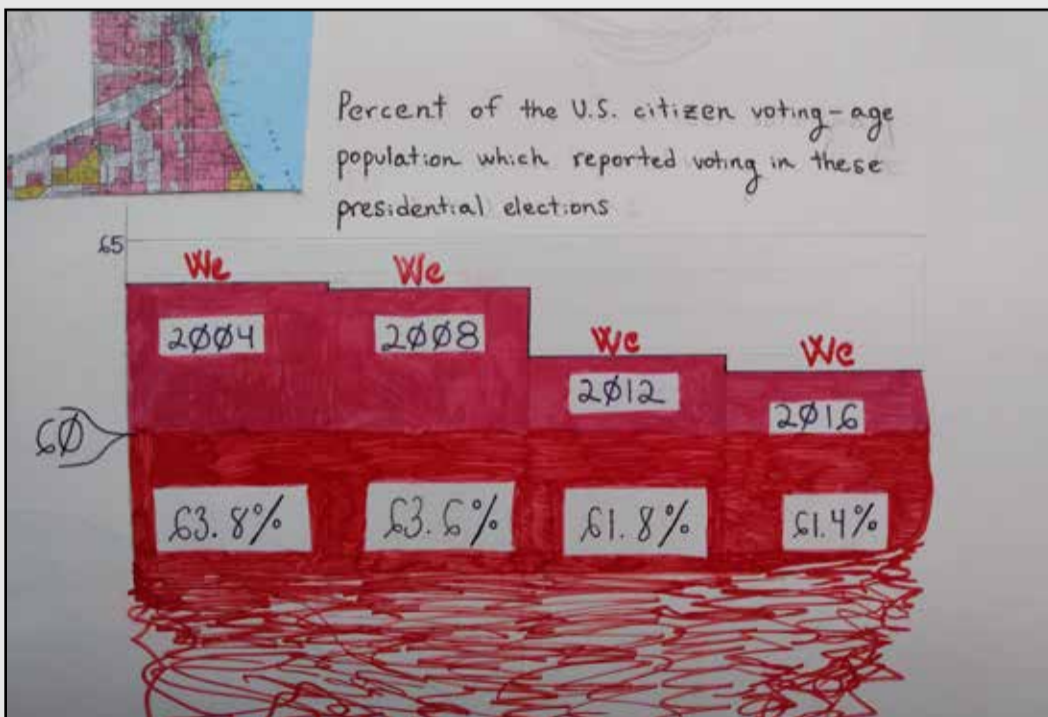 Percent of the U.S. citizen voting-age
population which reported voting in these
presidential elections
65
We
We
We
We
2004
2008
2012
2016
60
63.8%
63.6%
61.8%
61.4%